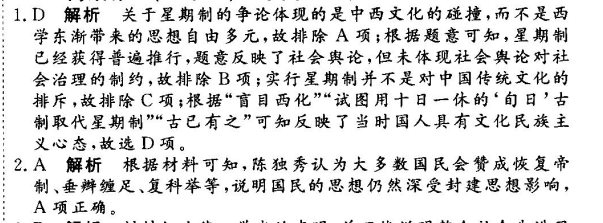 1. D 解析 关于星期制的争论体现的是中西文化的碰撞,而不是西
学东渐带来的思想自由多元,故排除 A 项;根据题意可知,星期制
已经获得普遍推行,题意反映了社会舆论,但未体现社会舆论对社
会治理的制约,故排除 B 项;实行星期制并不是对中国传统文化的
排斥,故排除 C 项;根据“盲目西化”“试图用十日一休的‘旬日’古
制取代星期制”“古已有之”可知反映了当时国人具有文化民族主
义心态,故选 D 项。
2. A 解析 根据材料可知,陈独秀认为大多数国民会赞成恢复帝
制、垂辫缠足、复科举等,说明国民的思想仍然深受封建思想影响,
A 项正确。